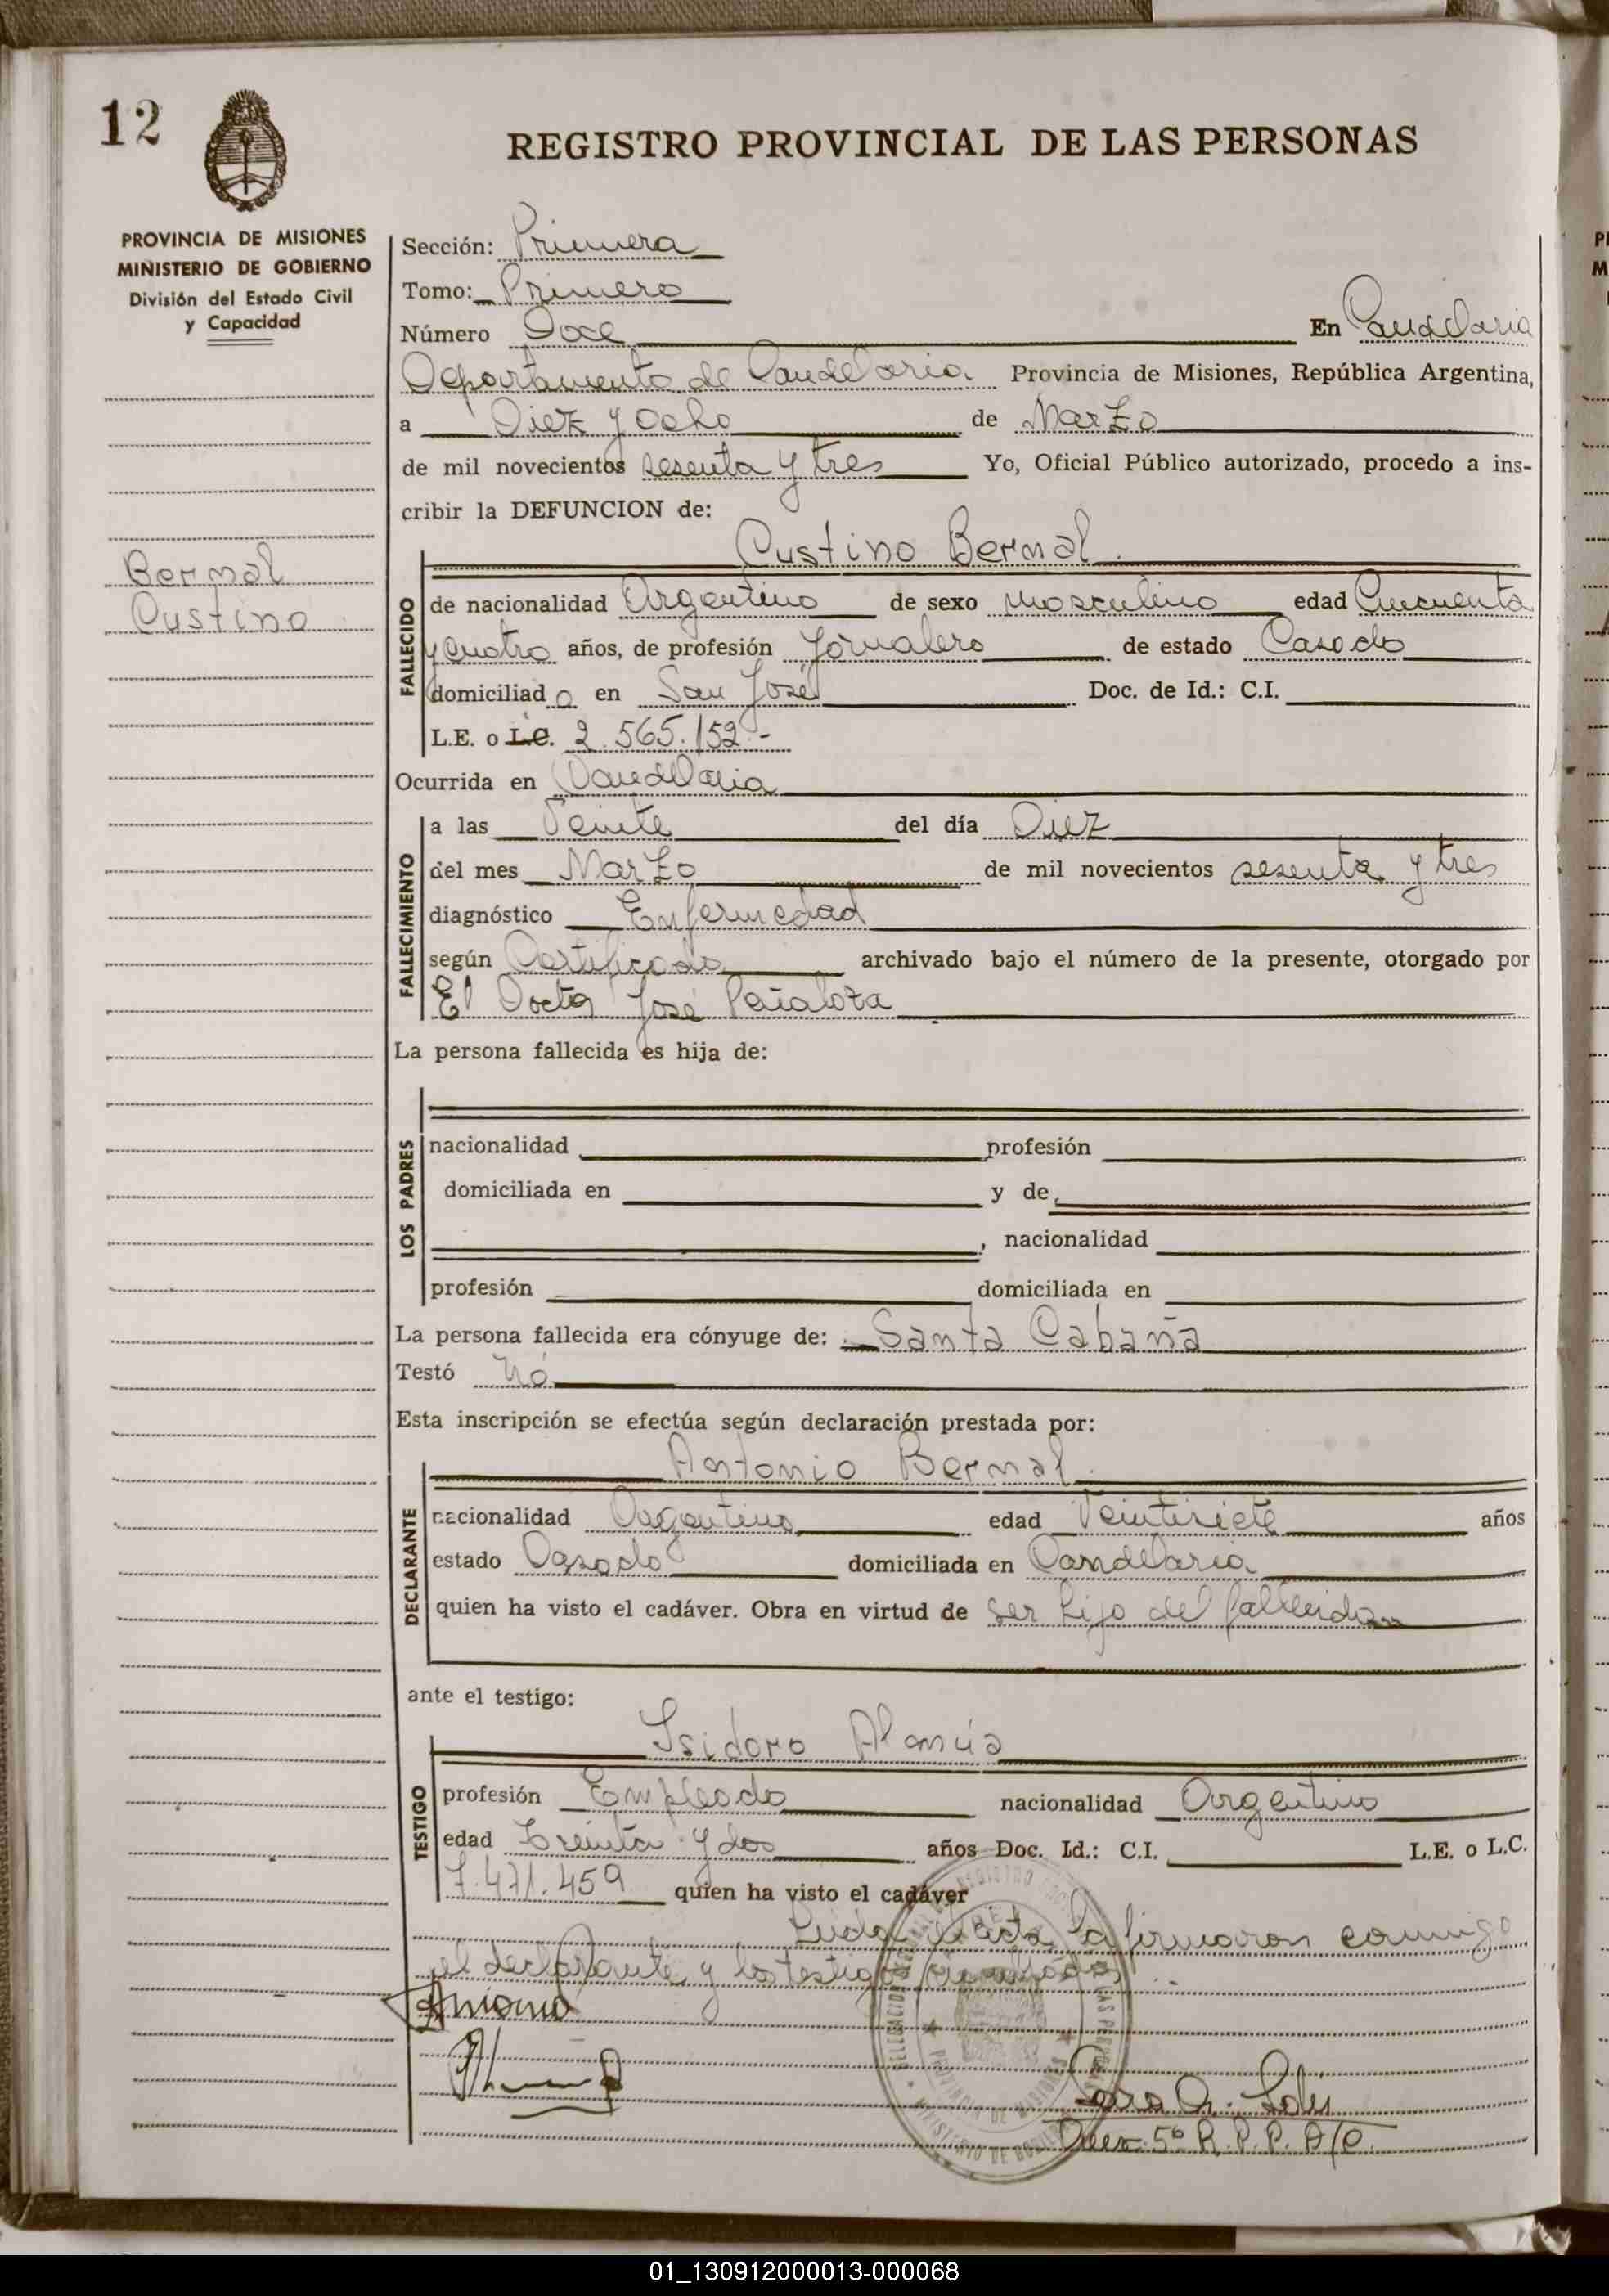 12
REGISTRO PROVINCIAL DE LAS PERSONAS
PROVINCIA DE MISIONES
MINISTERIO DE GOBIERNO
División del Estado Civil
y Capacidad
Sección: Primera
Tomo: Primero
Número Doce En Candelaria
Departamento de Candelaria Provincia de Misiones, República Argentina,
a Diez y Ocho de Marzo
de mil novecientos sesenta y tres Yo, Oficial Público autorizado, procedo a ins-
cribir la DEFUNCION de:
Custino Bernal
Bernal
Custino
FALLECIDO
de nacionalidad Argentino de sexo masculino edad Cincuenta
y cuatro años, de profesión Jornalero de estado Casado
domiciliado en San José Doc. de Id.: C.I.
L.E. o L.C. 2.565.152-
Ocurrida en Candelaria
FALLECIMIENTO
a las Veinte del día Diez
del mes Marzo de mil novecientos sesenta y tres
diagnóstico Enfermedad
según Certificado archivado bajo el número de la presente, otorgado por
El Doctor José Peñaloza
La persona fallecida es hija de:
LOS PADRES
nacionalidad profesión
domiciliada en y de
, nacionalidad
profesión domiciliada en
La persona fallecida era cónyuge de: Santa Cabaña
Testó No
Esta inscripción se efectúa según declaración prestada por:
Antonio Bernal
DECLARANTE
nacionalidad Argentino edad Veintisiete años
estado Casado domiciliada en Candelaria
quien ha visto el cadáver. Obra en virtud de ser hijo del fallecido
ante el testigo:
Isidoro Alamúa
TESTIGO
profesión Empleado nacionalidad Argentino
edad Treinta y dos años Doc. Id.: C.I. L.E. o L.C.
7.471.459 quien ha visto el cadáver
Leida el acta, la firmaron conmigo
el declarante y los testigos
Antonio
MINISTERIO DE GOBIERNO
PROVINCIA DE MISIONES
01_130912000013-000068